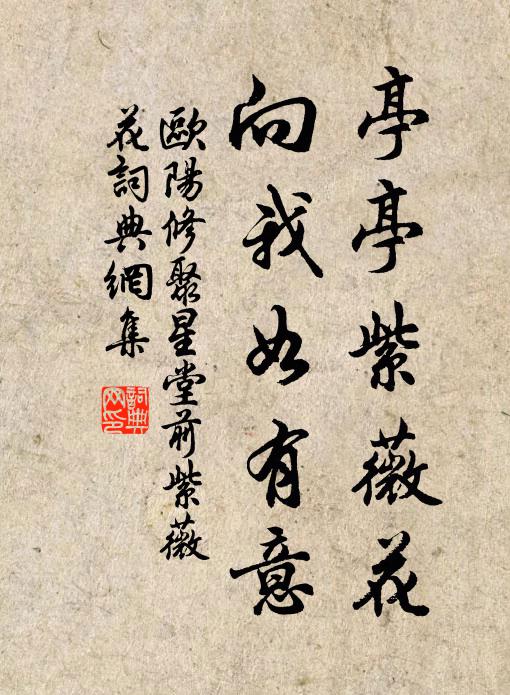 亭亭紫薇花
向我如有意
歐陽修聚星堂前紫薇
花詞典網集
詞典
网印